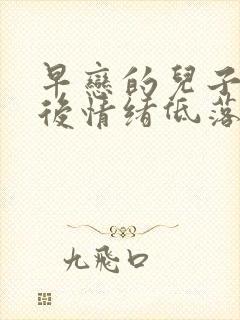 早戀的兒子
後情緒低落
九飛口